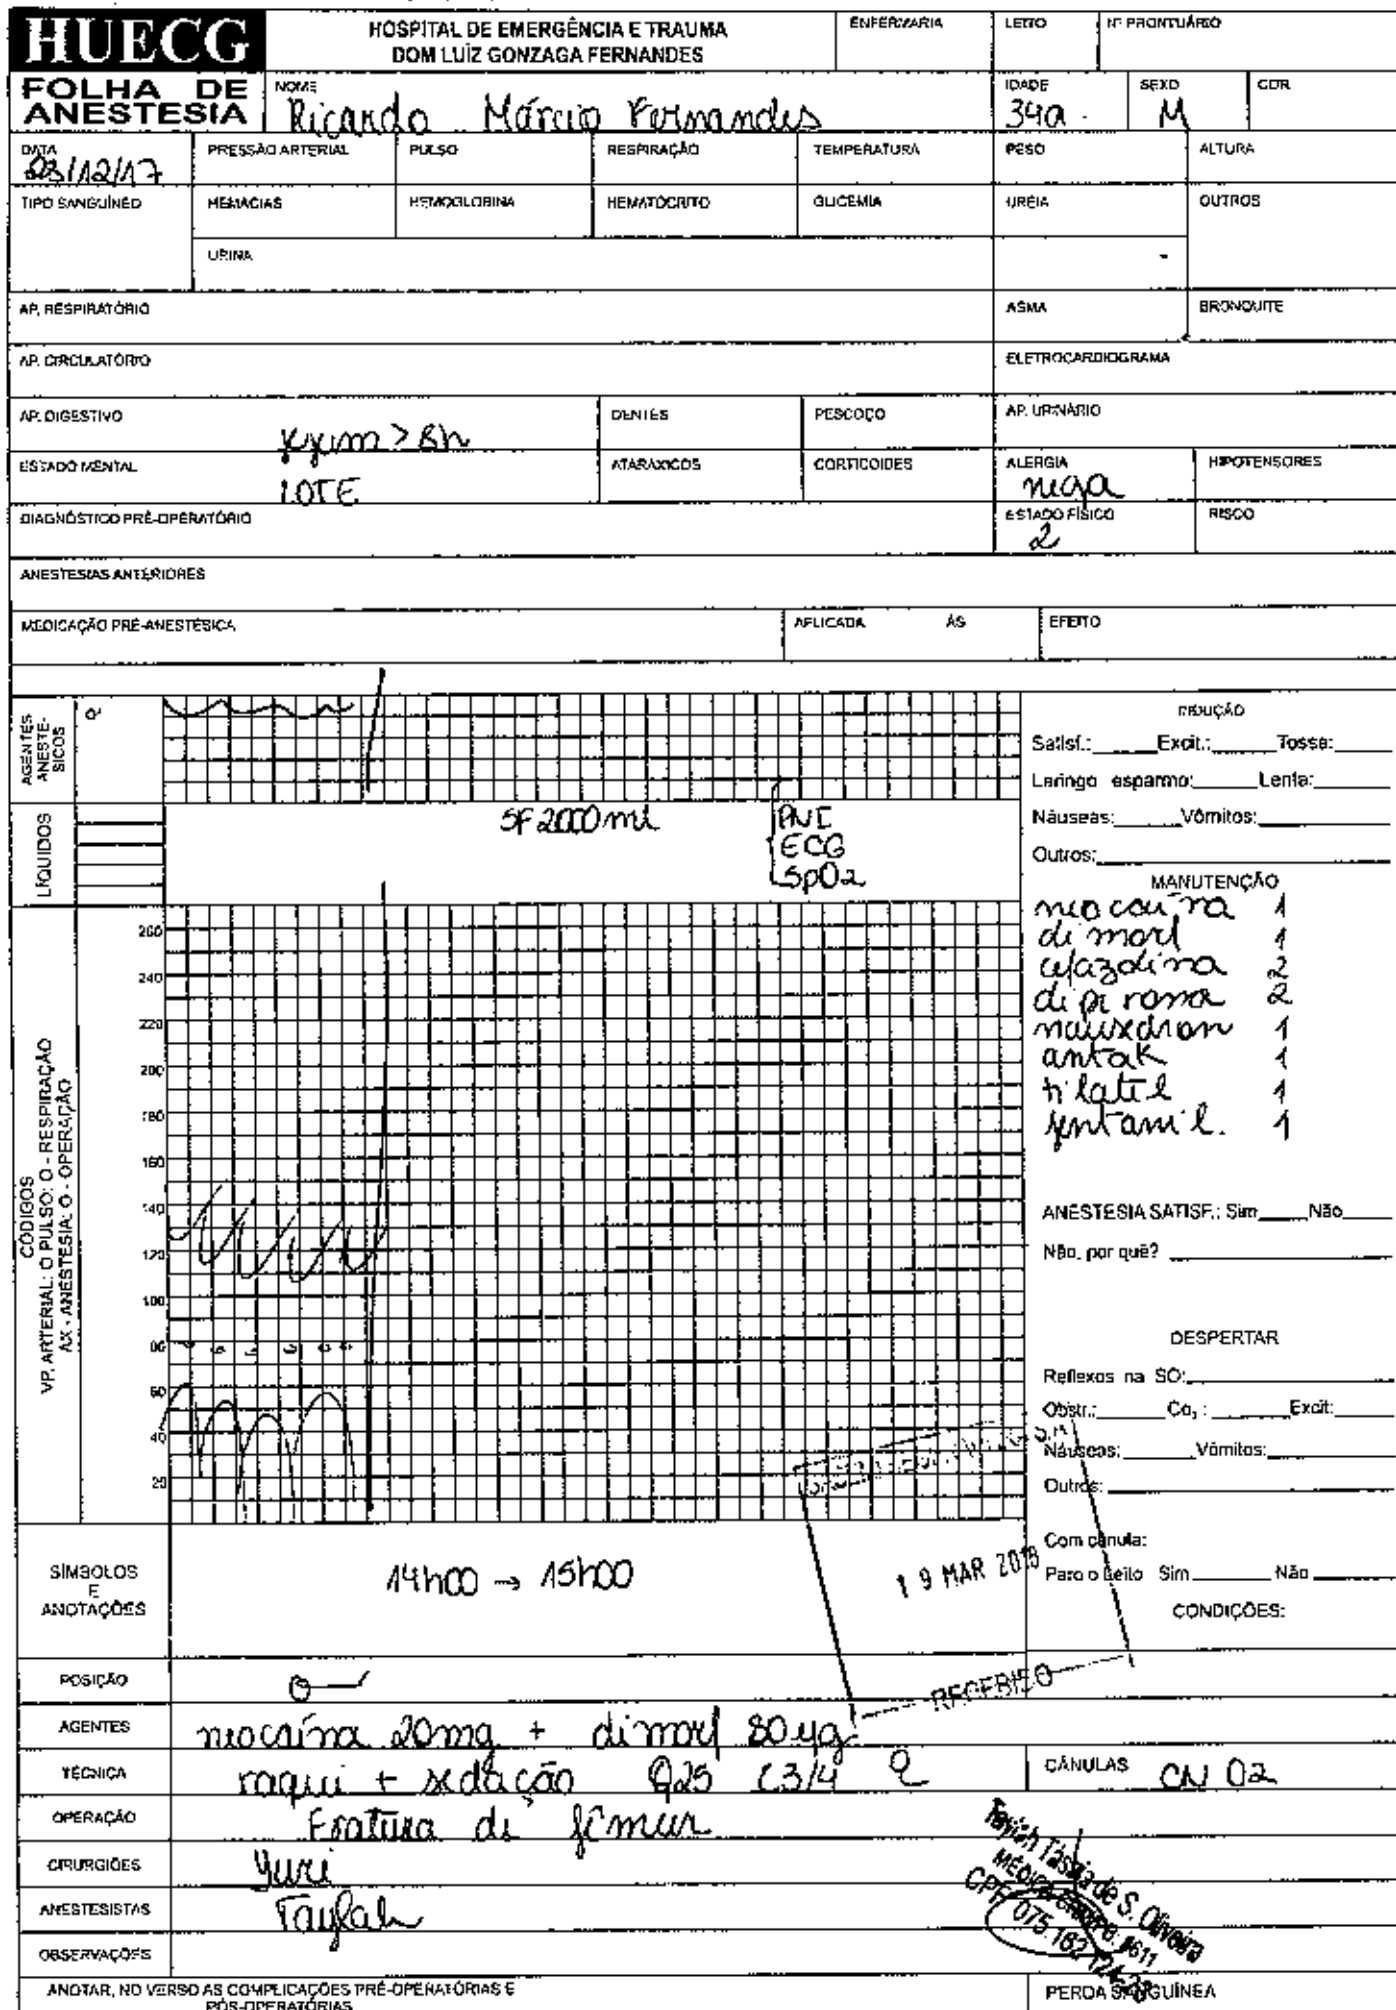 HUECG
HOSPITAL DE EMERGÊNCIA E TRAUMA
DOM LUÍZ GONZAGA FERNANDES
ENFERMARIA
LEITO
Nº PRONTUÁRIO
FOLHA DE
ANESTESIA
NOME
Ricardo Márcio Fernandes
IDADE
34a
SEXO
M
COR
DATA
23/12/17
PRESSÃO ARTERIAL
PULSO
RESPIRAÇÃO
TEMPERATURA
PESO
ALTURA
TIPO SANGUÍNEO
HEMÁCIAS
HEMOGLOBINA
HEMATÓCRITO
GLICEMIA
URÉIA
OUTROS
URINA
AP. RESPIRATÓRIO
ASMA
BRONQUITE
AP. CIRCULATÓRIO
ELETROCARDIOGRAMA
AP. DIGESTIVO
jejum > 8h
DENTES
PESCOÇO
AP. URINÁRIO
ESTADO MENTAL
LOTE
ATARÁXICOS
CORTICOIDES
ALERGIA
nega
HIPOTENSORES
DIAGNÓSTICO PRÉ-OPERATÓRIO
ESTADO FÍSICO
2
RISCO
ANESTESIAS ANTERIORES
MEDICAÇÃO PRÉ-ANESTÉSICA
APLICADA ÀS
EFEITO
AGENTES
ANESTÉ-
SICOS
LÍQUIDOS
SF 2000 ml
PNI
ECG
SpO2
Satisf.: Excit.: Tosse:
Laringo esparmo: Lenta:
Náuseas: Vômitos:
Outros:
MANUTENÇÃO
neocaína 1
dimorf 1
cefazolina 2
dipirona 2
nausedron 1
antak 1
tilatil 1
fentanil. 1
CÓDIGOS
VP. ARTERIAL: O PULSO: O - RESPIRAÇÃO
AX - ANESTESIA: O - OPERAÇÃO
260
240
220
200
180
160
140
120
100
80
60
40
20
ANESTESIA SATISF.: Sim Não
Não, por quê?
DESPERTAR
Reflexos na SO:
Obstr.: Co₂: Excit:
Náuseas: Vômitos:
Outros:
Com cânula:
Para o Leito Sim Não
CONDIÇÕES:
SÍMBOLOS
E
ANOTAÇÕES
14h00 → 15h00
19 MAR 2018
RECEBIDO
POSIÇÃO
AGENTES
neocaína 20mg + dimorf 80µg
TÉCNICA
raqui + sedação Q25 L3/4
CÂNULAS
CN O2
OPERAÇÃO
Fratura de fêmur
CIRURGIÕES
Yuri
ANESTESISTAS
Taylah
OBSERVAÇÕES
ANOTAR, NO VERSO AS COMPLICAÇÕES PRÉ-OPERATÓRIAS E
PÓS-OPERATÓRIAS
PERDA SANGUÍNEA